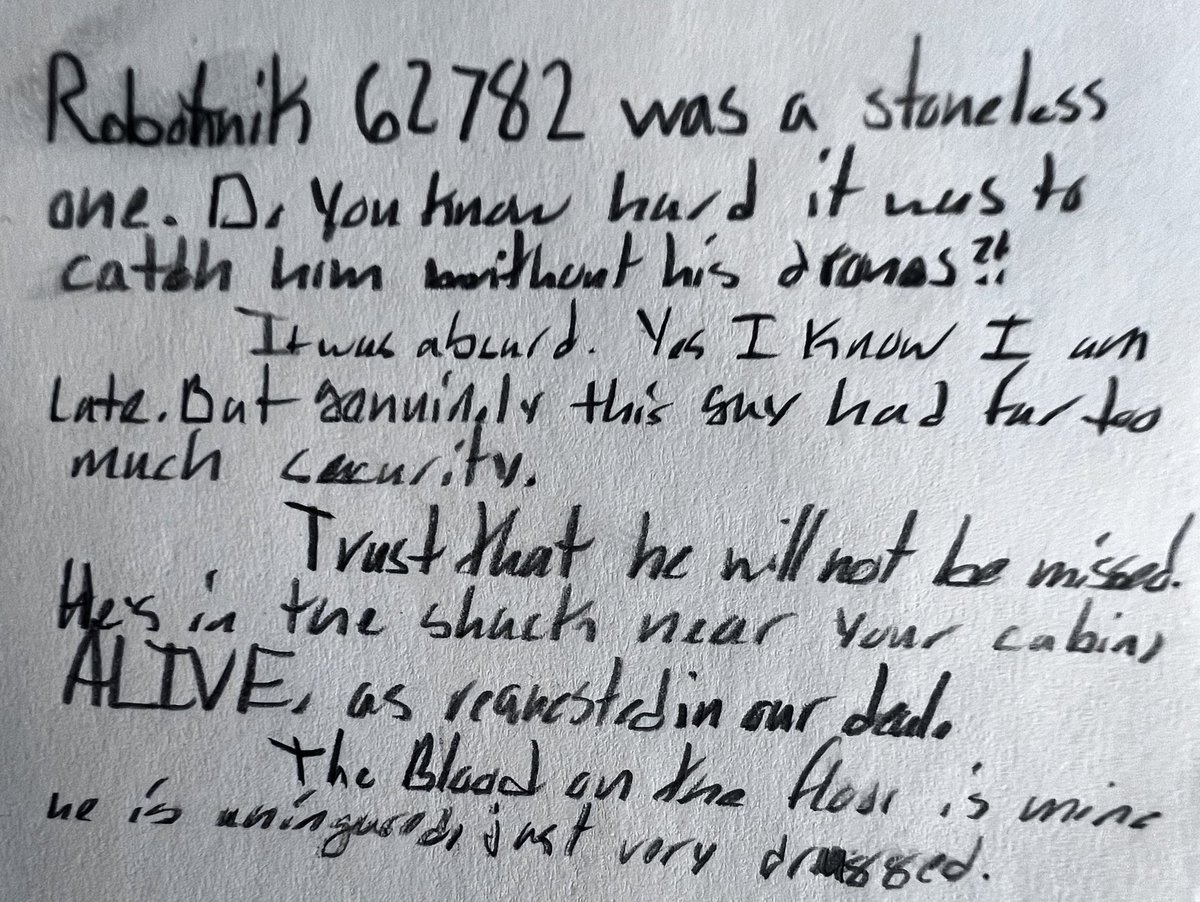 Robotnik 62782 was a stoneless
one. Do you know hard it was to
catch him without his drones?!
It was absurd. Yes I know I am
late. But genuinely this guy had far too
much security.
Trust that he will not be missed.
He's in the shack near your cabin,
ALIVE, as requested in our deal.
The Blood on the floor is mine
he is uningured, just very drugged.